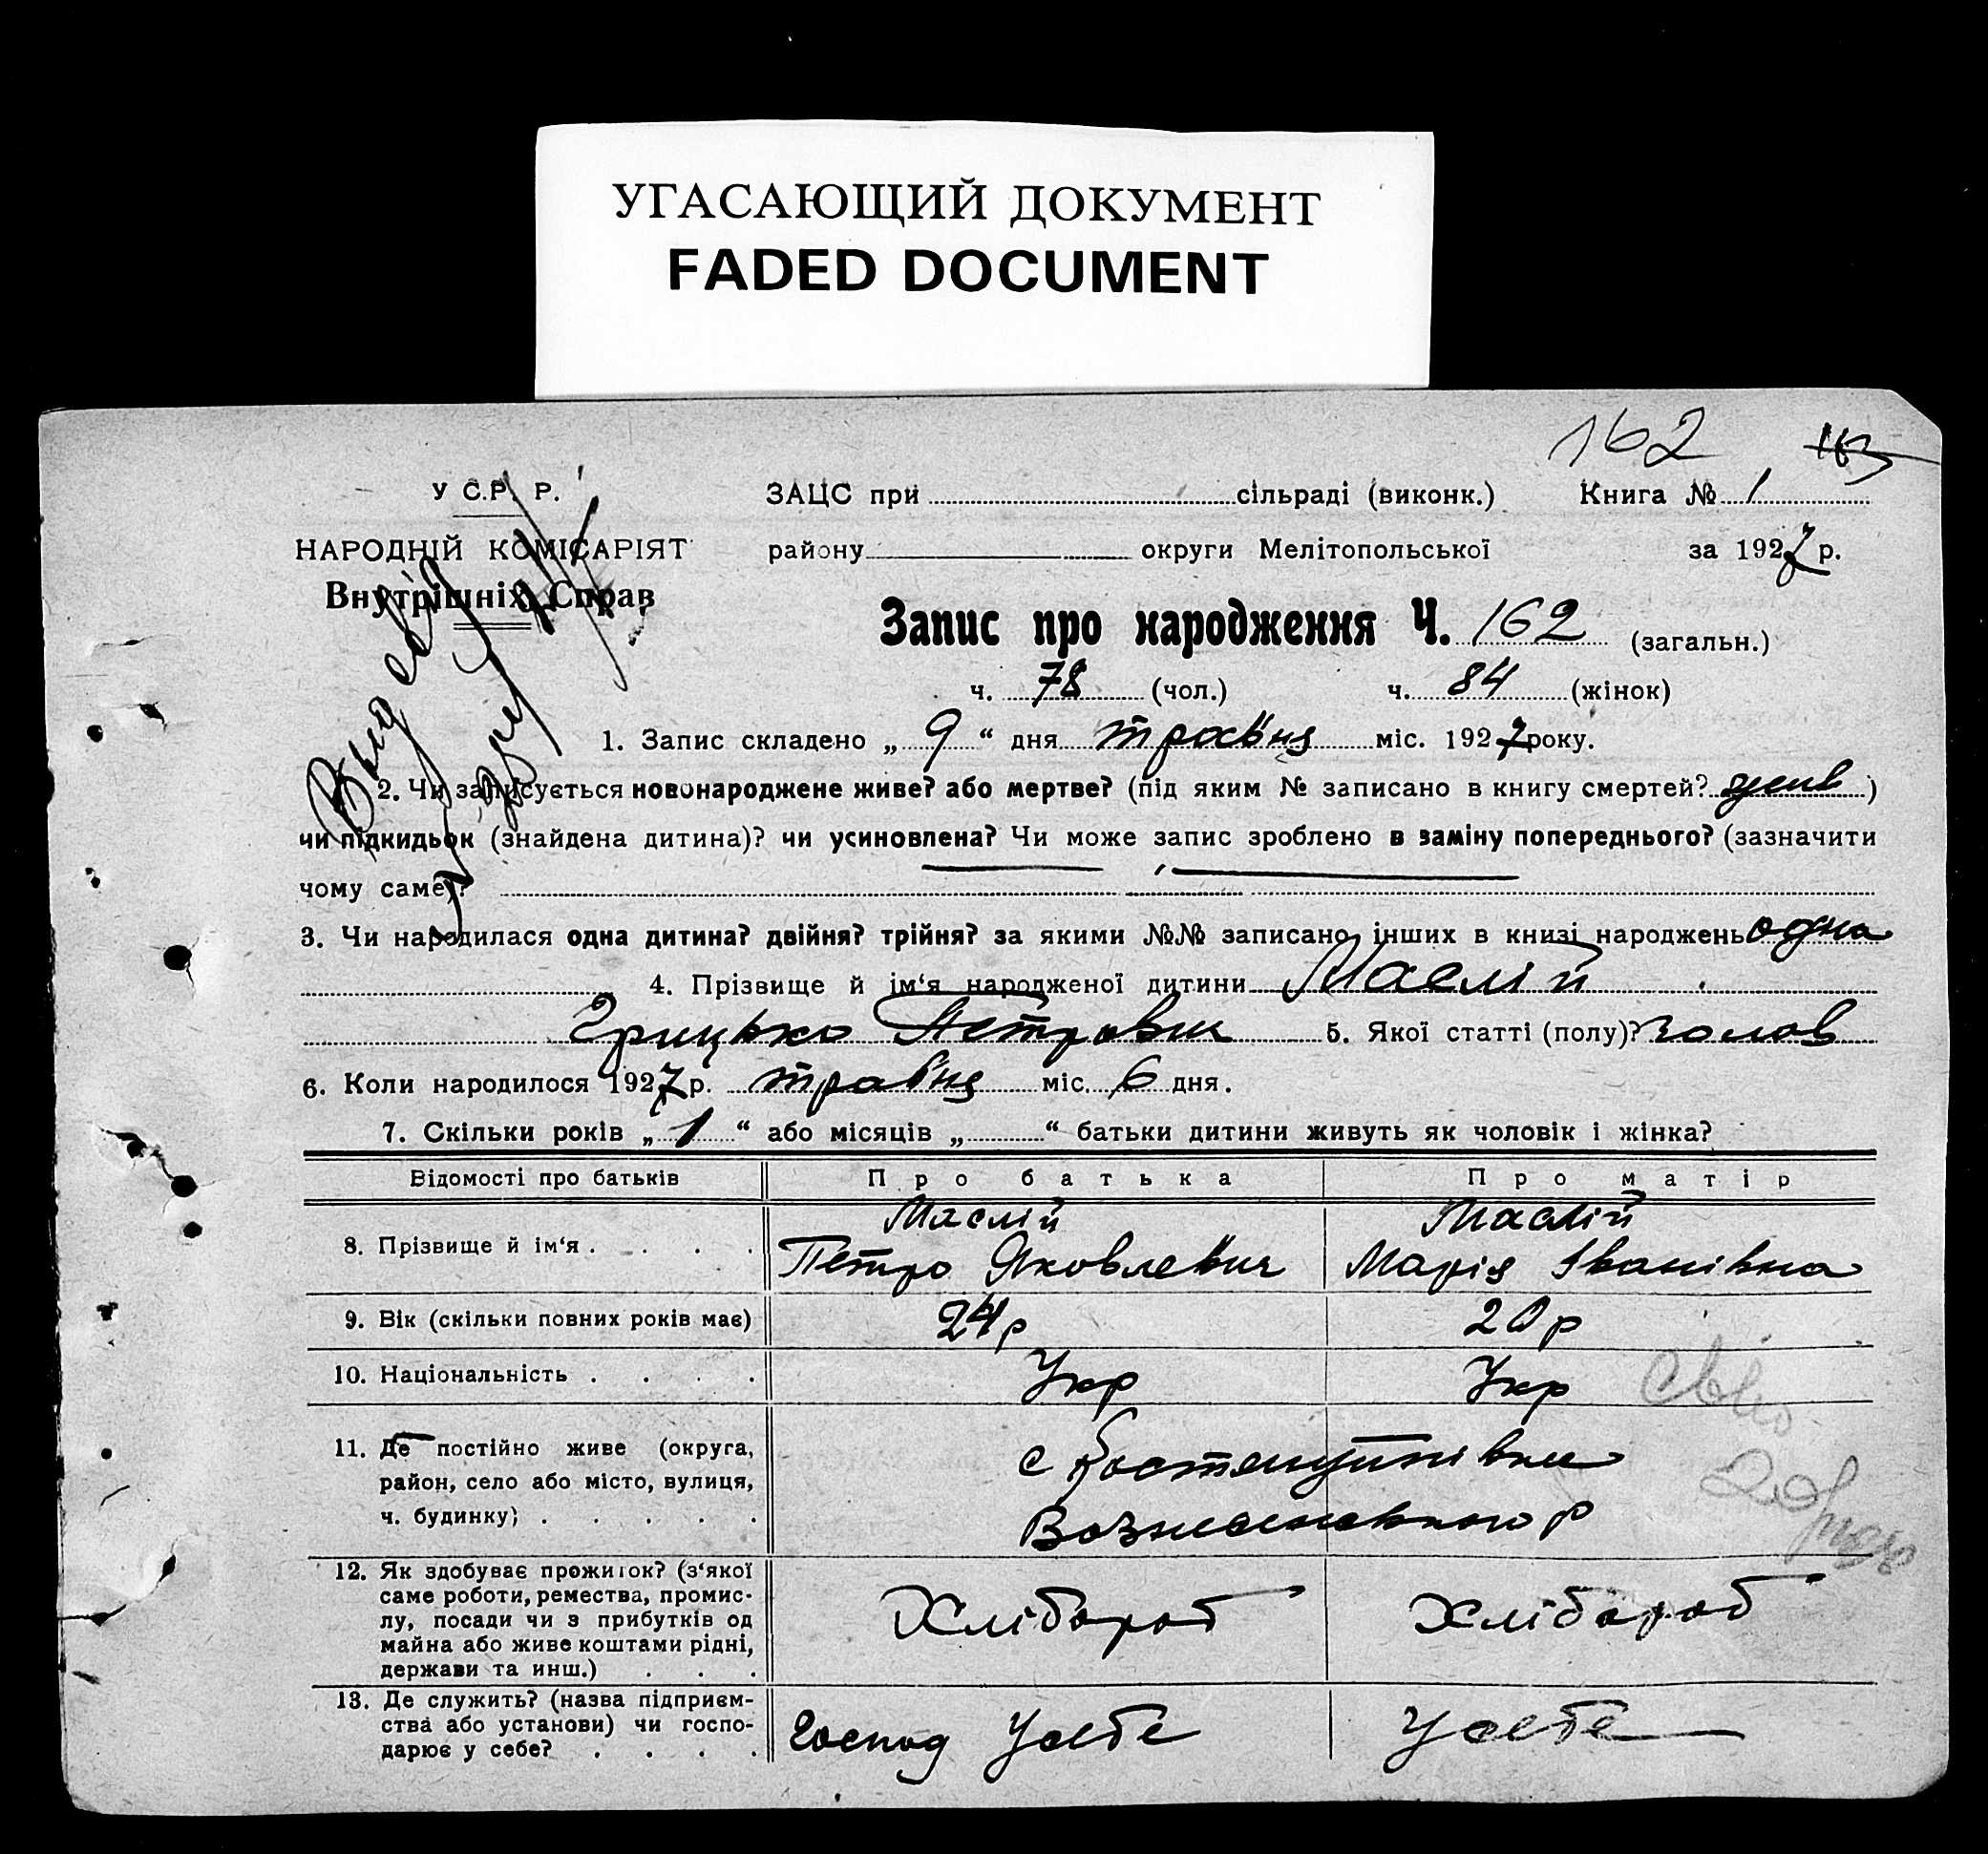 УГАСАЮЩИЙ ДОКУМЕНТ
FADED DOCUMENT
162 163
У С.Р. Р. ЗАЦС при сільраді (виконк.) Книга № 1
НАРОДНІЙ КОМІСАРІЯТ району округи Мелітопольської за 1927 р.
Внутрішніх Справ
Запис про народження Ч. 162 (загальн.)
ч. 78 (чол.) ч. 84 (жінок)
1. Запис складено „ 9 “ дня травня міс. 1927 року.
2. Чи записується новонароджене живе? або мертве? (під яким № записано в книгу смертей? жив )
чи підкидьок (знайдена дитина)? чи усиновлена? Чи може запис зроблено в заміну попереднього? (зазначити
чому саме)?
3. Чи народилася одна дитина? двійня? трійня? за якими №№ записано інших в книзі народжень одна
4. Прізвище й ім‘я народженої дитини Маслій
Грицько Петрович 5. Якої статті (полу)? чолов
6. Коли народилося 1927 р. травня міс. 6 дня.
7. Скільки років „ 1 “ або місяців „ “ батьки дитини живуть як чоловік і жінка?
Відомості про батьків Про батька Про матір
8. Прізвище й ім‘я . . . . Маслій Петро Яковлевич Маслій Марія Іванівна
9. Вік (скільки повних років має) 24 р 20 р
10. Національність . . . . Укр Укр
11. Де постійно живе (округа,
район, село або місто, вулиця, с Костянтинівки
ч. будинку) . . . . . Вознесенського р
12. Як здобуває прожиток? (з‘якої
саме роботи, ремества, промис-
лу, посади чи з прибутків од Хлібороб Хлібороб
майна або живе коштами рідні,
держави та инш.) . . .
13. Де служить? (назва підприєм-
ства або установи) чи госпо- Господ У себе У себе
дарює у себе? . . . .